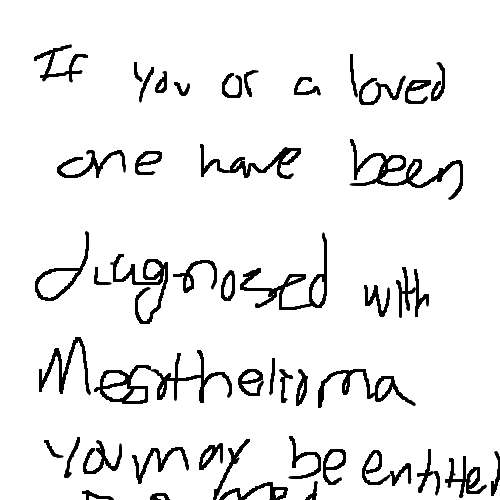 If you or a loved
one have been
diagnosed with
Mesothelioma
You may be entitled